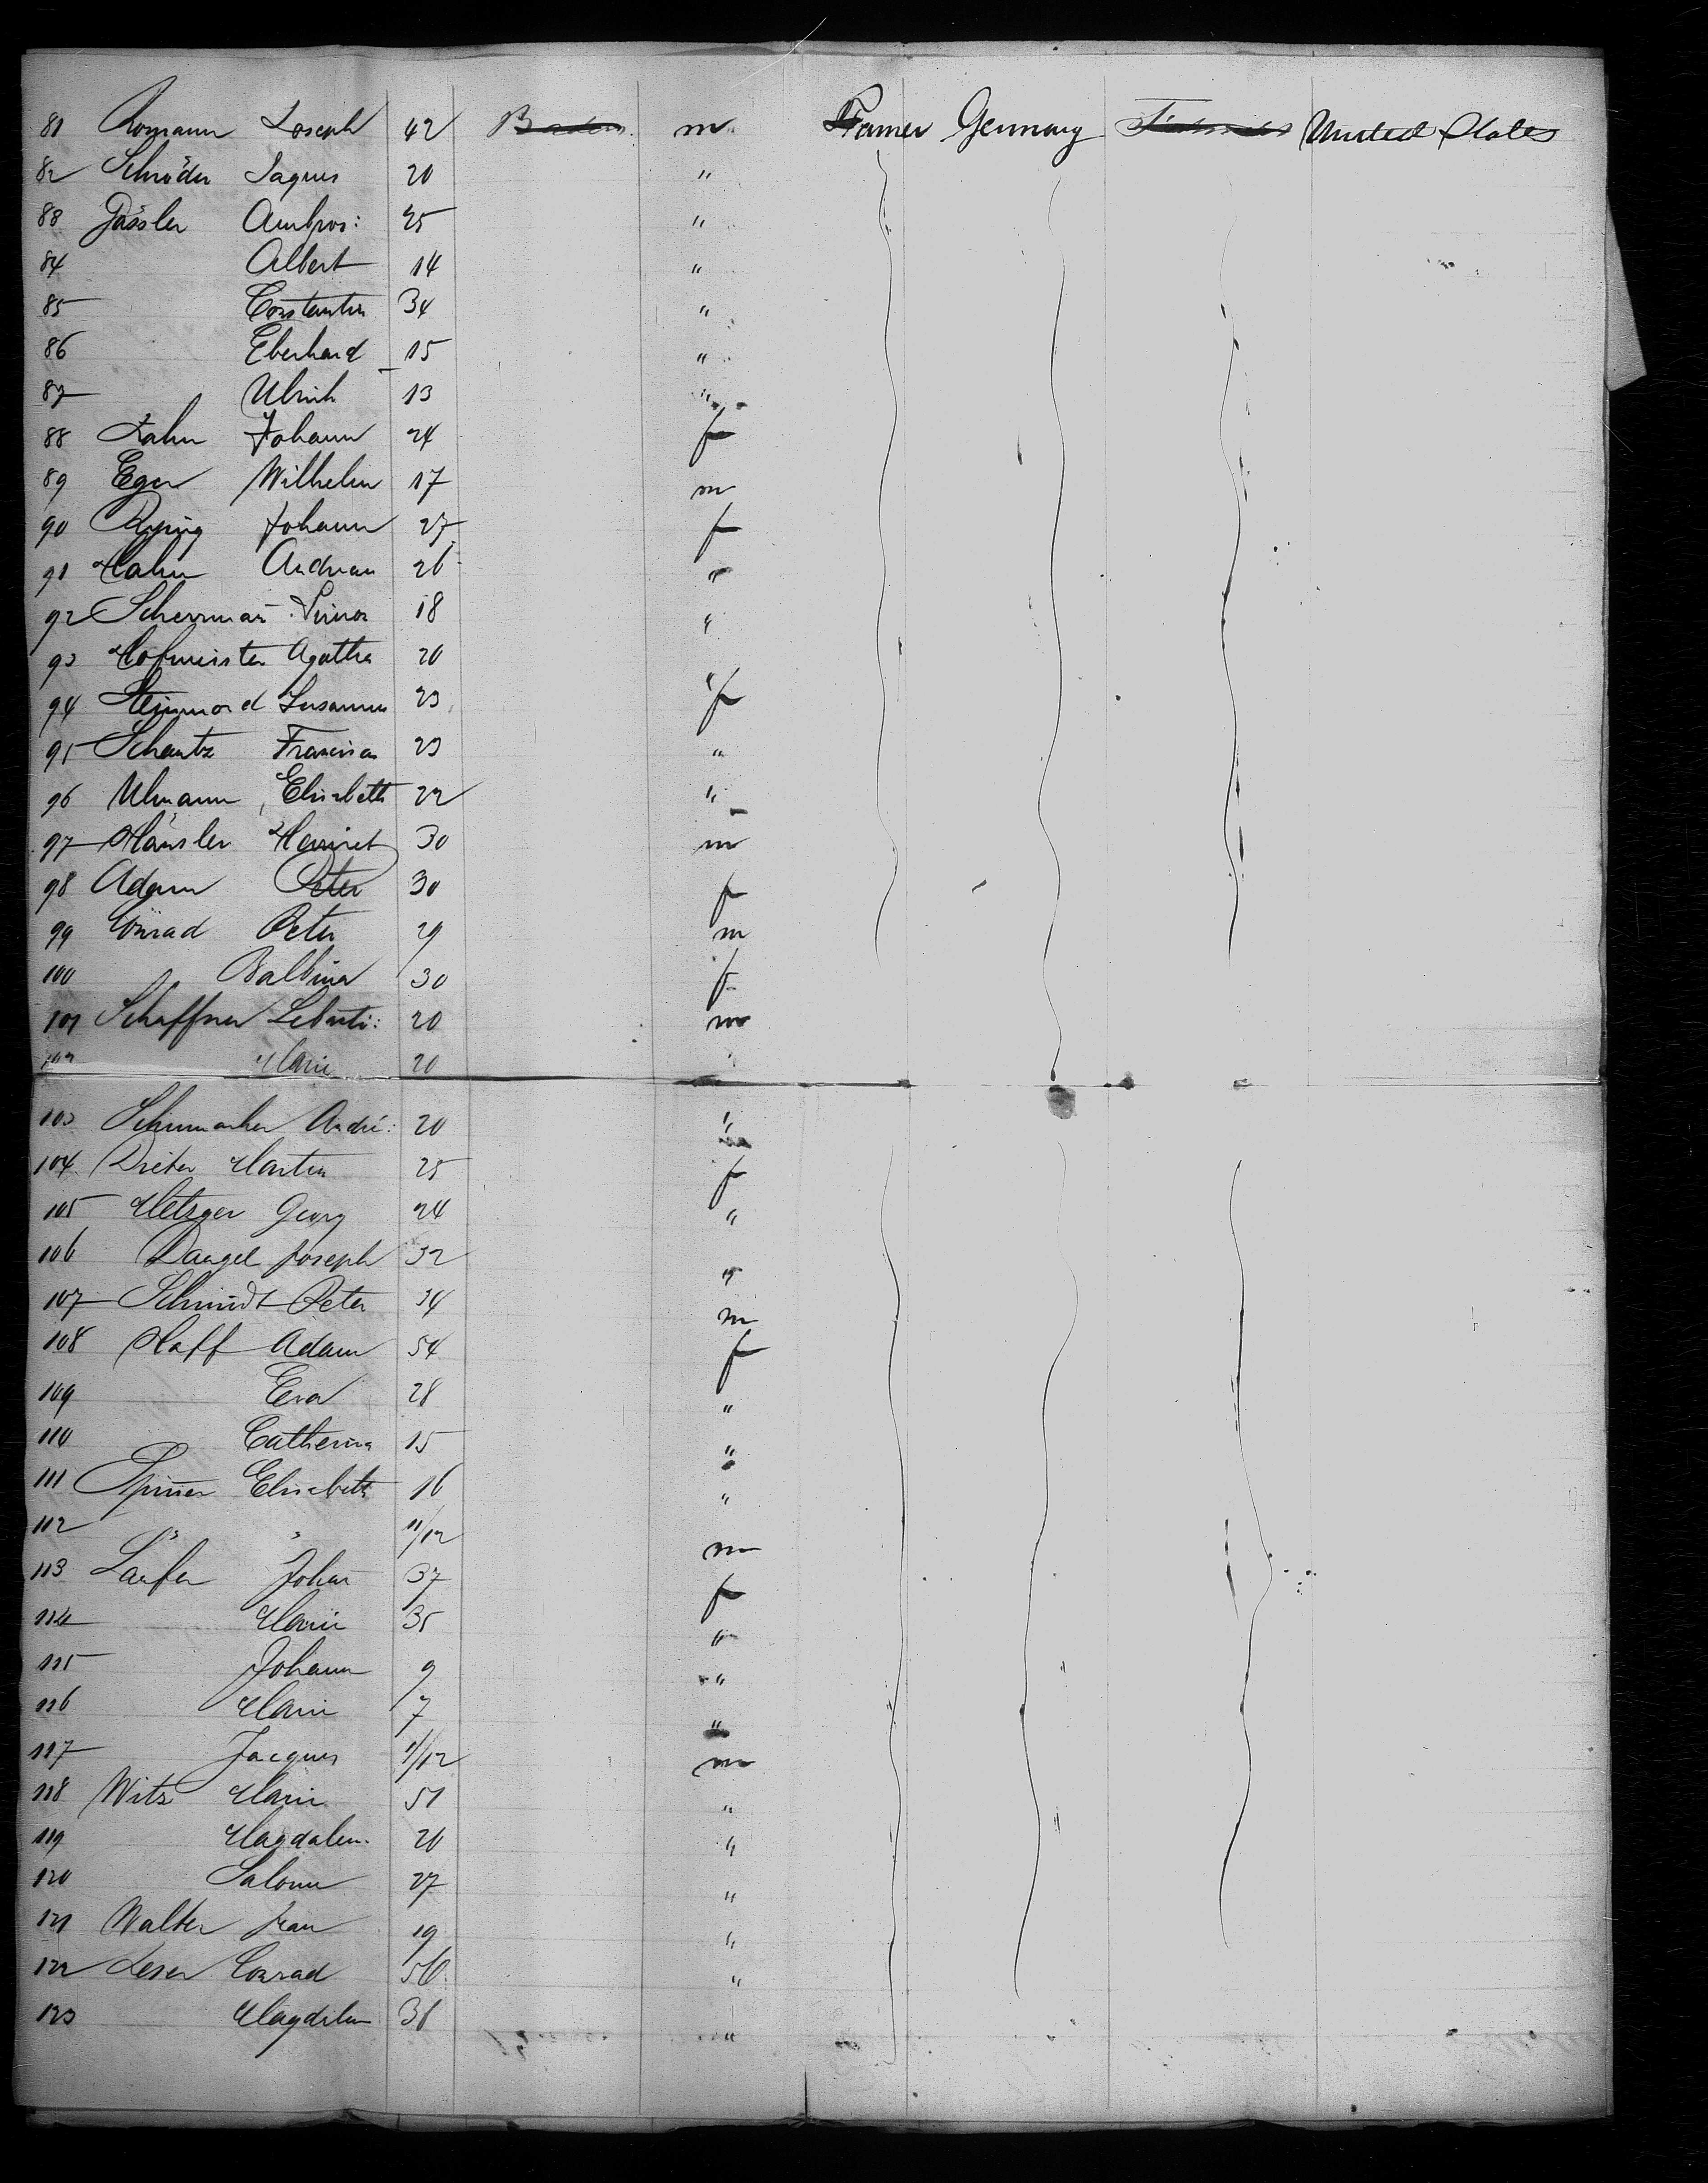 81 Romann Joseph 42 Baden m Farmer Germany United States
82 Schröder Jaques 20 "
83 Gässler Ambros: 25 "
84 Albert 14 "
85 Constantin 34 "
86 Eberhard 15 "
87 Ulrich 13 "
88 Zahn Johann 24 f
89 Eger Wilhelm 17 m
90 Johann 27 f
91 Hahn Andreas 26 "
92 Scherrman 18 "
93 Hofmeister Agatha 20
94 Susanna 23 " f
95 Schantz Francisca 23 "
96 Ulmann, Elisabeth 22 "
97 Häusler 30 m
98 Adam Peter 30 f
99 Conrad Peter 29 m
100 Balbina 30 f
101 Schaffner Sebasti: 20 m
102 Marie 20 "
103 Schumacher André: 20 "
104 Dreher Martin 25 f
105 Metzger Georg 24 "
106 Dangel Joseph 32 "
107 Schmidt Peter 34 m
108 Haff Adam 54 f
109 Eva 28 "
110 Catherina 15 "
111 Spinner Elisabeth 16 "
112 " " 11/12 m
113 Laufer Johan 37 f
114 Marie 35 "
115 Johann 9 "
116 Marie 7 "
117 Jacques 11/12 m
118 Witz Marie 51 "
119 Magdalen. 20 "
120 Salome 27 "
121 Walter Jean 19 "
122 Leser Conrad 50 "
123 Magdalen 36 "